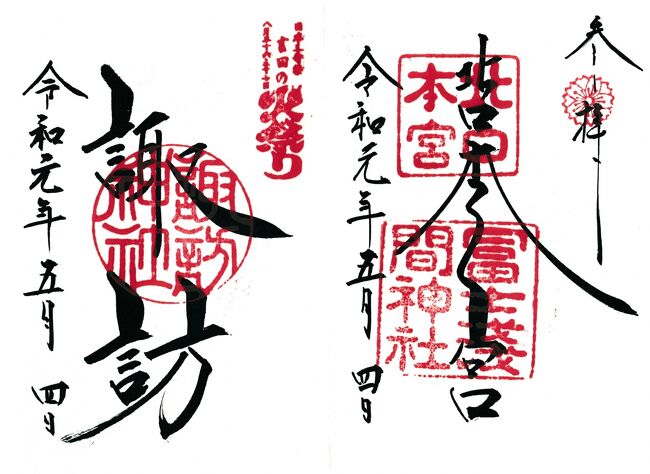 参拝
北口本宮
北口
本宮
冨士浅
間神社
令和元年五月四日
日本三奇祭
吉田の
火祭り
諏訪
諏訪
神社
令和元年五月四日